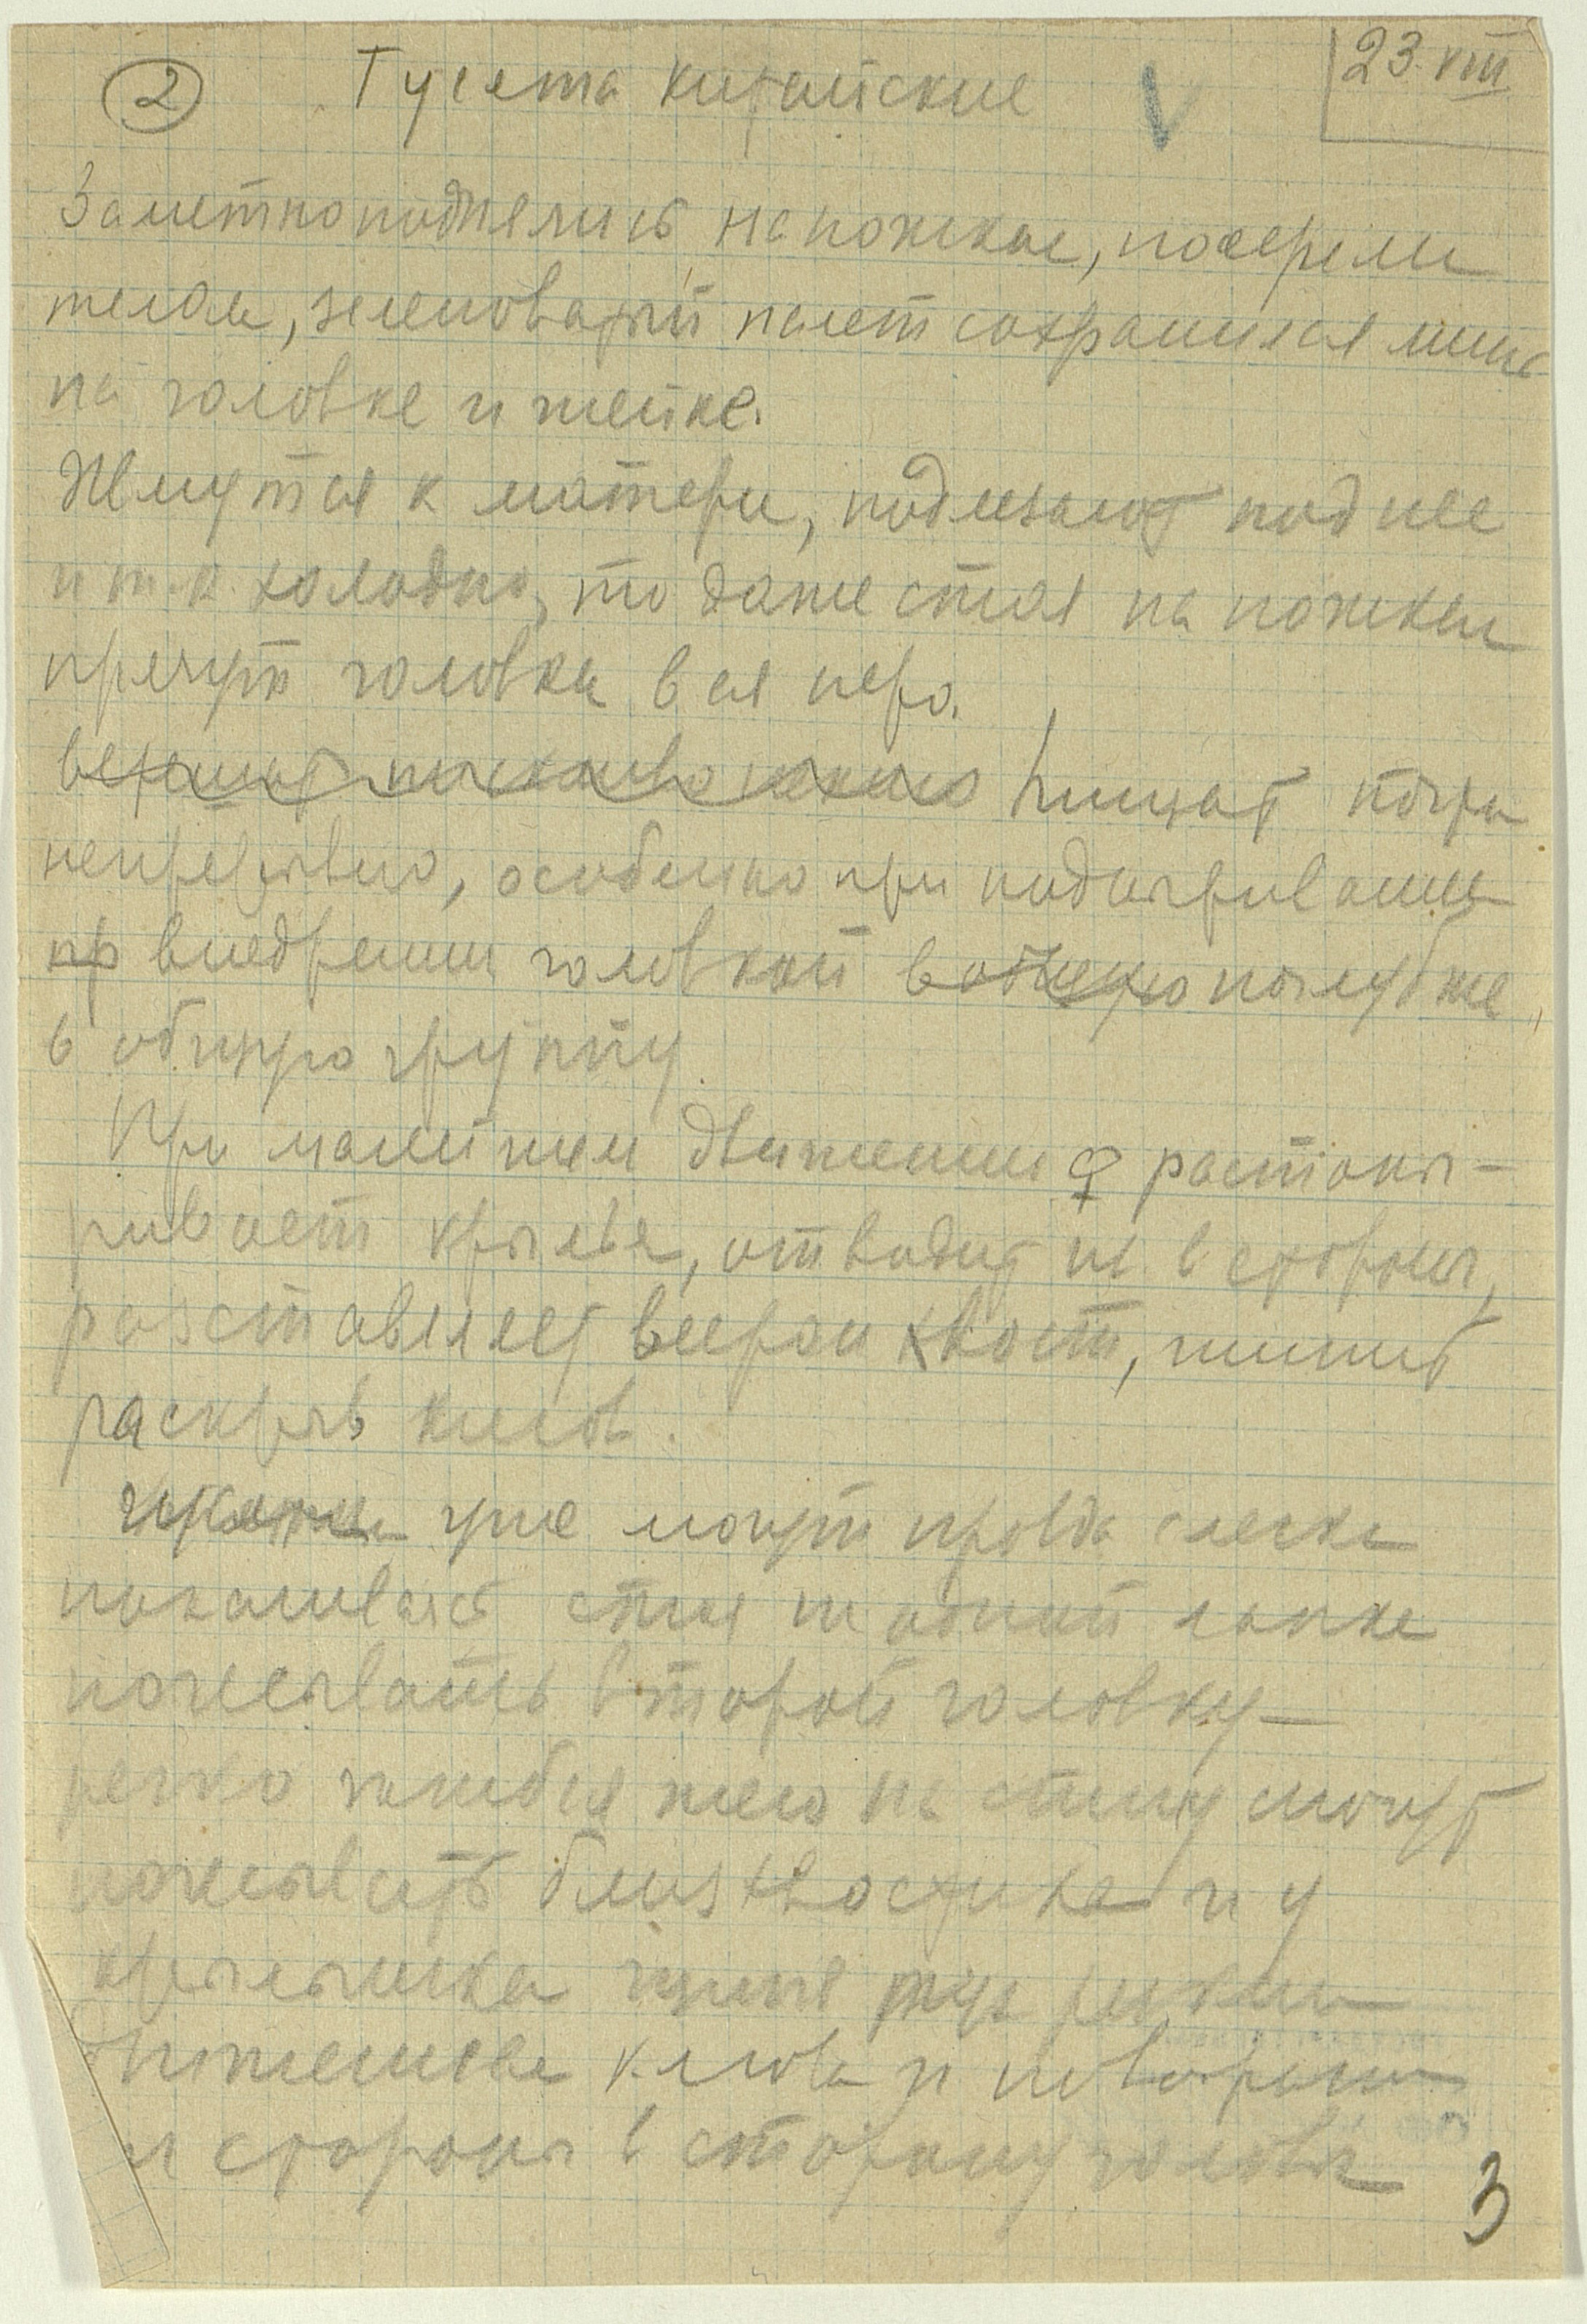 2
Гусята китайские
23.VIII
Заметно поднялись на ножках, посерели
телом, зеленоватый налет сохранился лишь
на головке и шейке.
Жмутся к матери, подлезают под нее
и т.к. холодно, то даже стоя на ножках
прячут головки в ея перо.
пищат почти
непрерывно, особенно при подпрыгивании
пр внедрении головкой в общую поглубже
в общую группу.
При малейшем движении ♀ растопы-
ривает крылья, отводит их в стороны,
разставляет веером хвост, шипит
раскрыв клюв.
уже могут правда слегка
покачиваясь стоя на одной лапке
почесывать второй головку —
резко загибая шею на спину могут
почесывать близ хвостика и у
крылышка резким
движением клюва и поворотом
из стороны в сторону головы
3